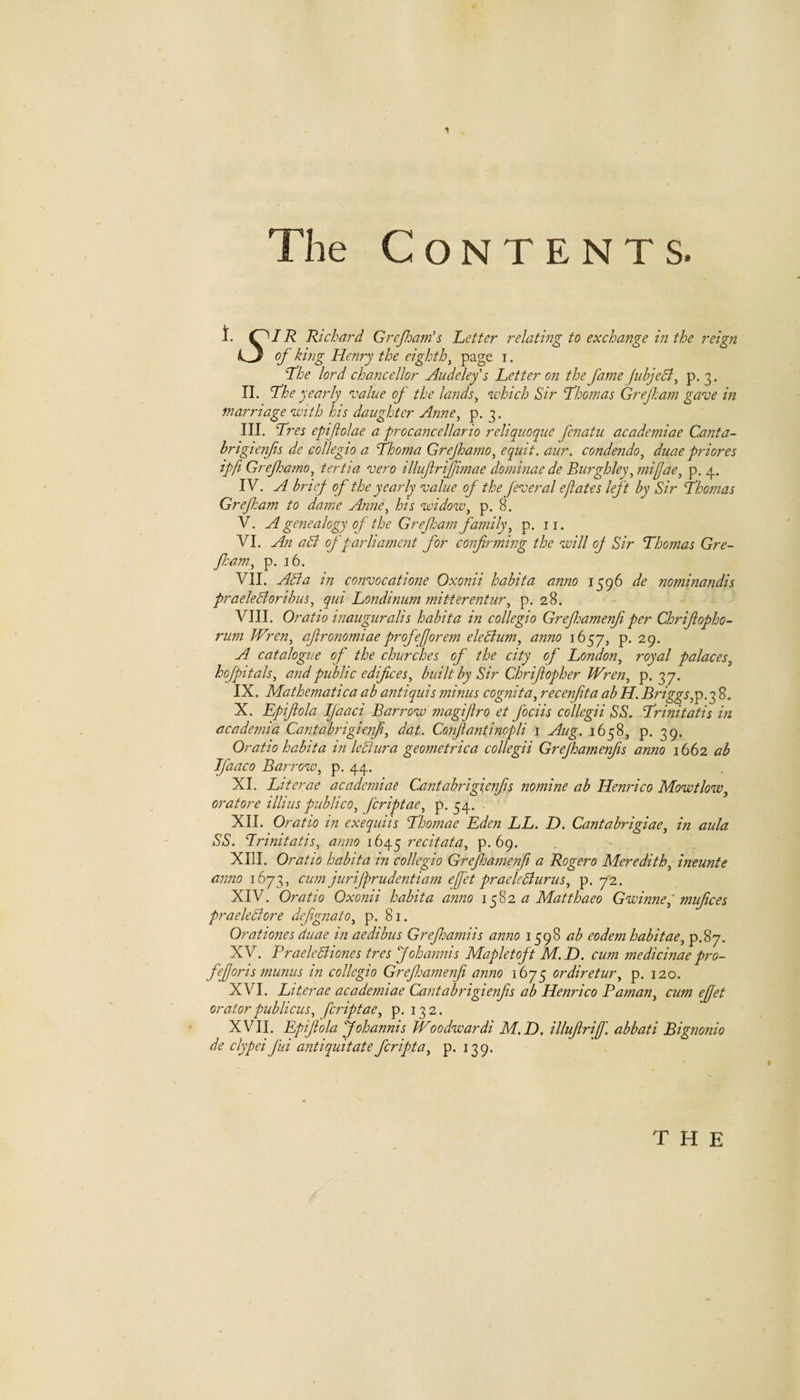 The CONTENTS.
I. SIR Richard Greſham's Letter relating to exchange in the reign
of king Henry the eighth, page 1.
The lord chancellor Audeley's Letter on the ſame ſubject, p. 3.
II. The yearly value of the lands, which Sir Thomas Greſham gave in
marriage with his daughter Anne, p. 3.
III. Tres epiſtolae a procancellario reliquoque ſenatu academiae Canta-
brigienſis de collegio a Thoma Greſhamo, equit. aur. condendo, duae priores
ipſi Greſhamo, tertia vero illuſtriſſimae dominae de Burghley, miſſae, p. 4.
IV. A brief of the yearly value of the ſeveral eſtates left by Sir Thomas
Greſham to dame Anne, his widow, p. 8.
V. A genealogy of the Greſham family, p. 11.
VI. An act of parliament for confirming the will of Sir Thomas Gre-
ſham, p. 16.
VII. Acta in convocatione Oxonii habita anno 1596 de nominandis
praelectoribus, qui Londinum mitterentur, p. 28.
VIII. Oratio inauguralis habita in collegio Greſhamenſi per Chriſtopho-
rum Wren, aſtronomiae profeſſorem electum, anno 1657, p. 29.
A catalogue of the churches of the city of London, royal palaces,
hoſpitals, and public edifices, built by Sir Chriſtopher Wren, p. 37.
IX. Mathematica ab antiquis minus cognita, recenſita ab H. Briggs, p. 38.
X. Epiſtola Iſaaci Barrow magiſtro et ſociis collegii SS. Trinitatis in
academia Cantabrigienſi, dat. Conſtantinopli 1 Aug. 1658, p. 39.
Oratio habita in lectura geometrica collegii Greſhamenſis anno 1662 ab
Iſaaco Barrow, p. 44.
XI. Literae academiae Cantabrigienſis nomine ab Henrico Mowtlow,
oratore illius publico, ſcriptae, p. 54.
XII. Oratio in exequiis Thomae Eden LL. D. Cantabrigiae, in aula
SS. Trinitatis, anno 1645 recitata, p. 69.
XIII. Oratio habita in collegio Greſhamenſi a Rogero Meredith, ineunte
anno 1673, cum juriſprudentiam eſſet praelecturus, p. 72.
XIV. Oratio Oxonii habita anno 1582 a Matthaeo Gwinne, muſices
praelectore deſignato, p. 81.
Orationes duae in aedibus Greſhamiis anno 1598 ab eodem habitae, p. 87.
XV. Praelectiones tres Johannis Mapletoft M. D. cum medicinae pro-
feſſoris munus in collegio Greſhamenſi anno 1675 ordiretur, p. 120.
XVI. Literae academiae Cantabrigienſis ab Henrico Paman, cum eſſet
orator publicus, ſcriptae, p. 132.
XVII. Epiſtola Johannis Woodwardi M. D. illuſtriſſ. abbati Bignonio
de clypei ſui antiquitate ſcripta, p. 139.
THE